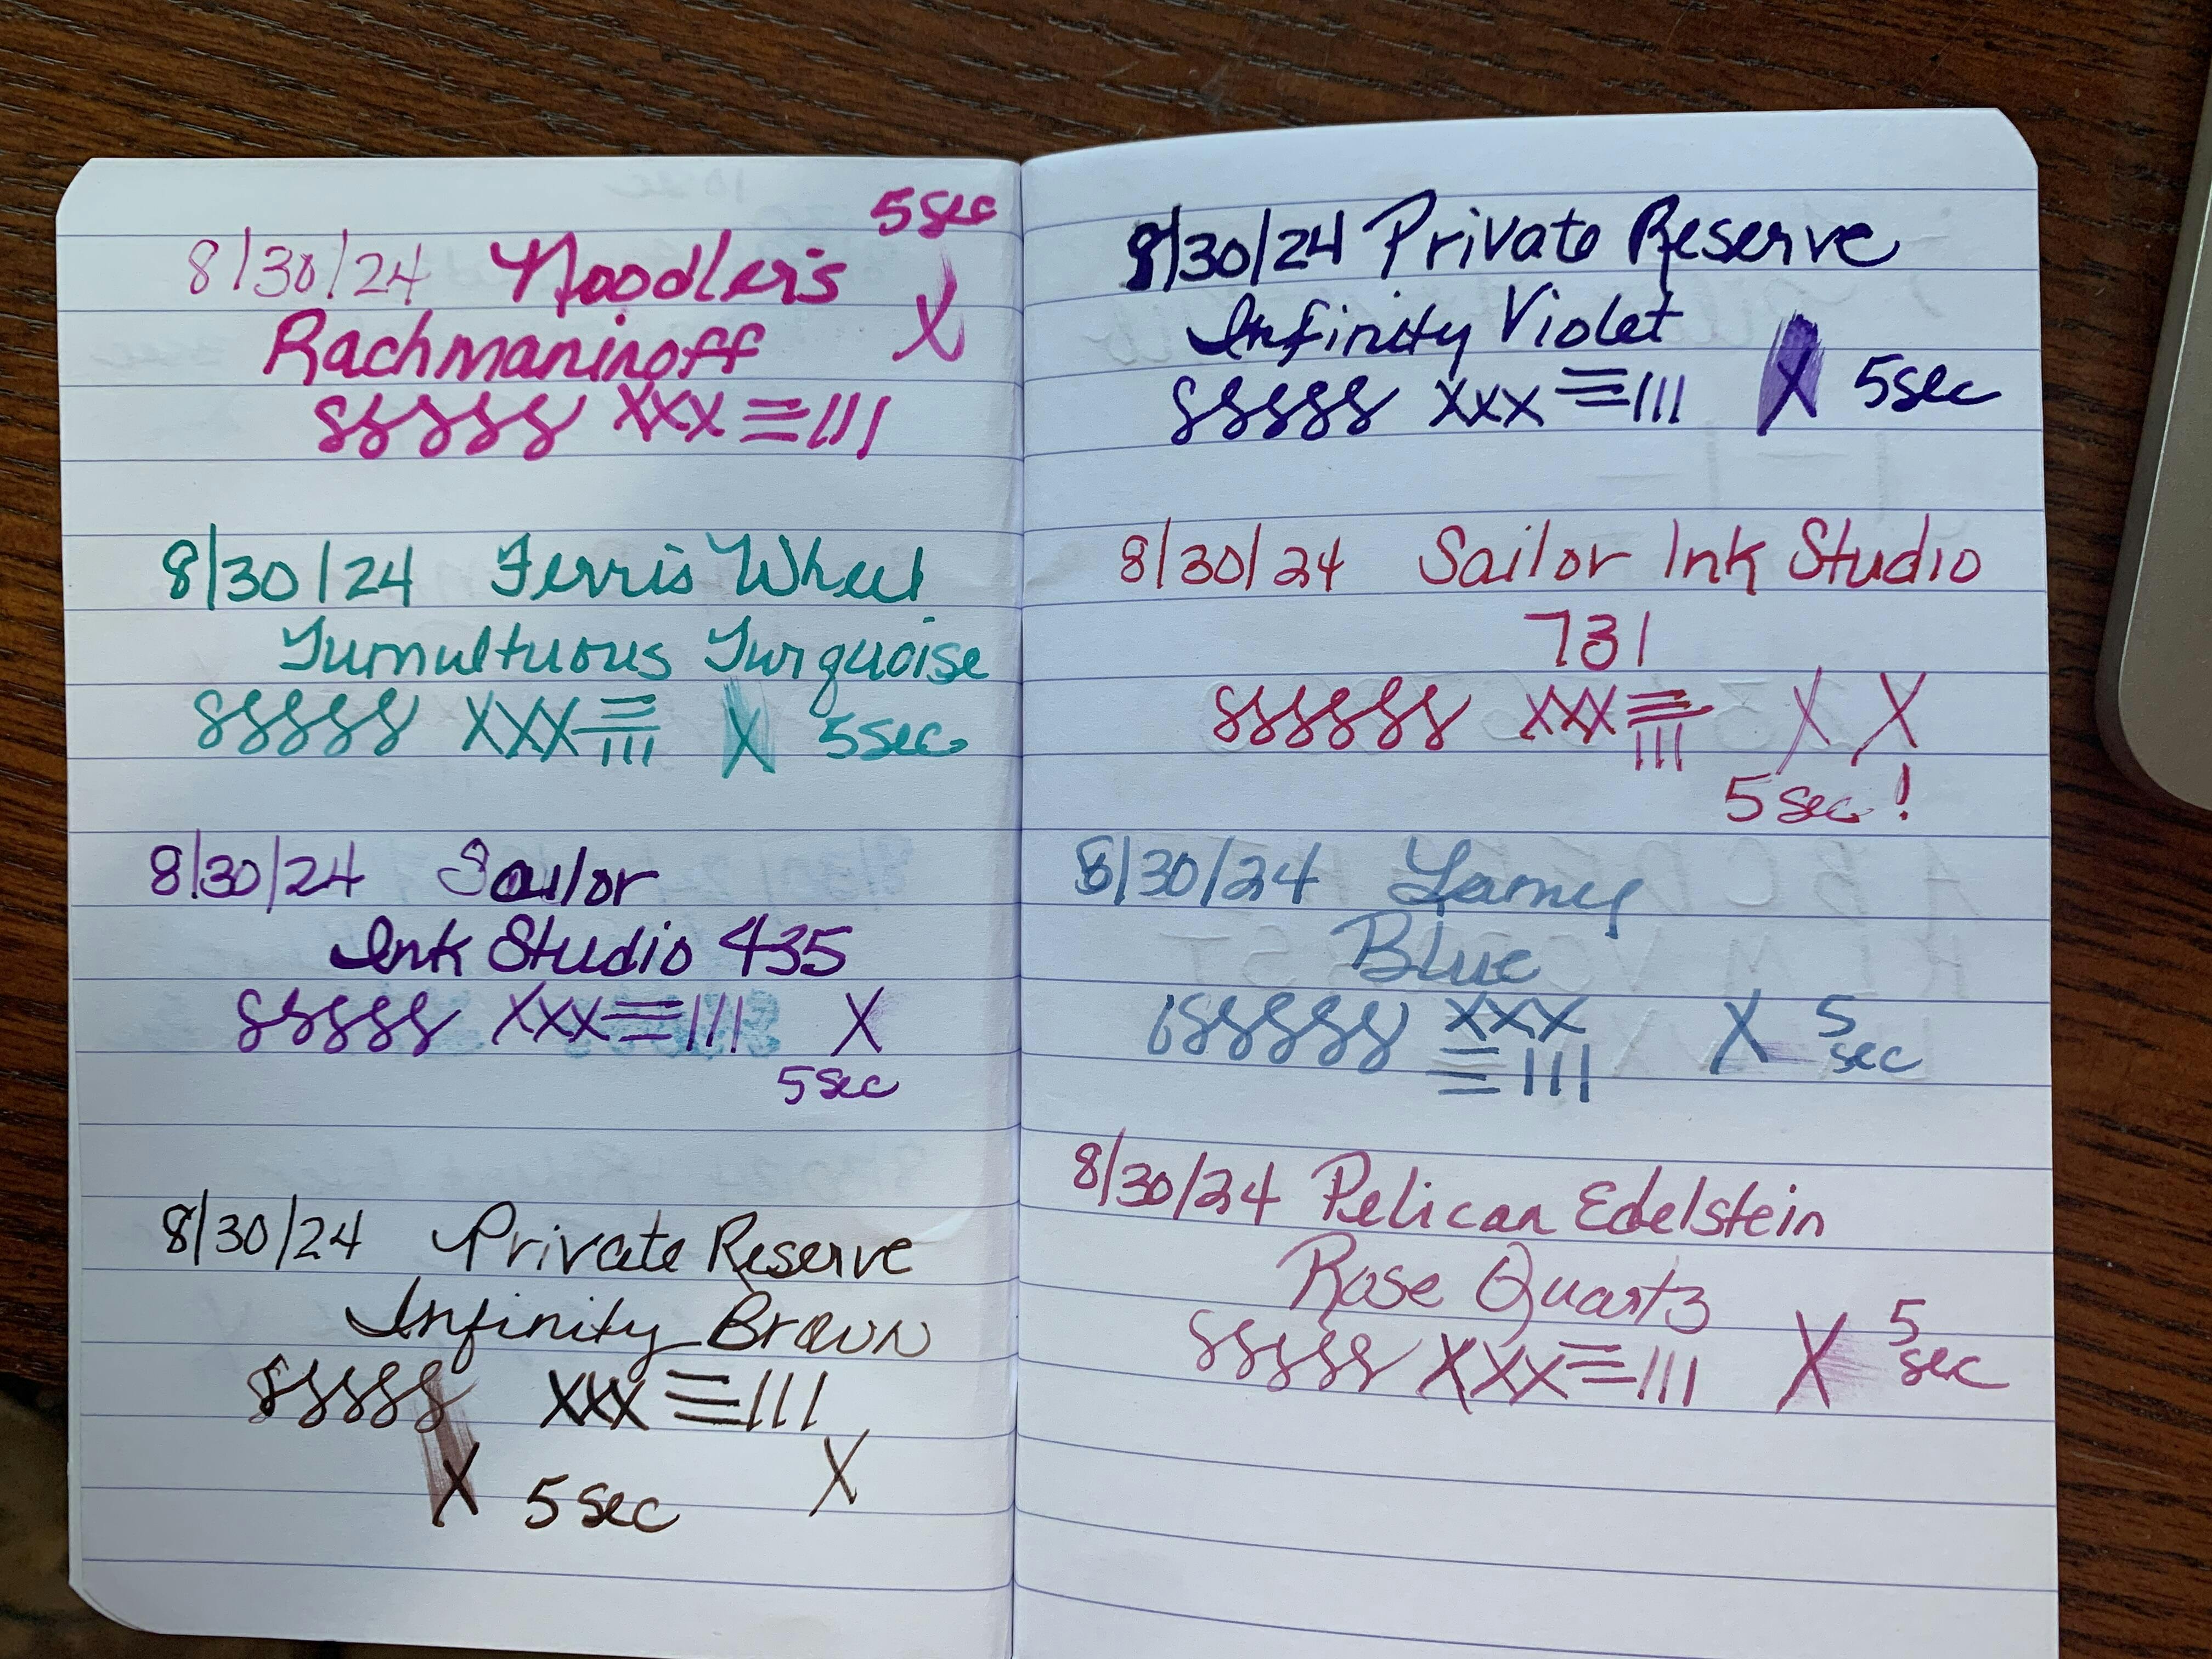 5 sec
8/30/24 Noodler's X
Rachmaninoff
sssss xxx ≡ III
8/30/24 Ferris Wheel
Tumultuous Turquoise
sssss XXX ≡ III X 5 sec.
8/30/24 Sailor
Ink Studio 435
sssss XXX ≡ III X
5 sec
8/30/24 Private Reserve
Infinity Brown
sssss XXX ≡ III
X 5 sec X
8/30/24 Private Reserve
Infinity Violet
sssss XXX ≡ III X 5 sec
8/30/24 Sailor Ink Studio
731
ssssss XXX ≡ III X X
5 sec!
8/30/24 Lamy
Blue
ssssss XXX X 5
≡ III sec
8/30/24 Pelican Edelstein
Rose Quartz
sssss XXX ≡ III X 5
sec